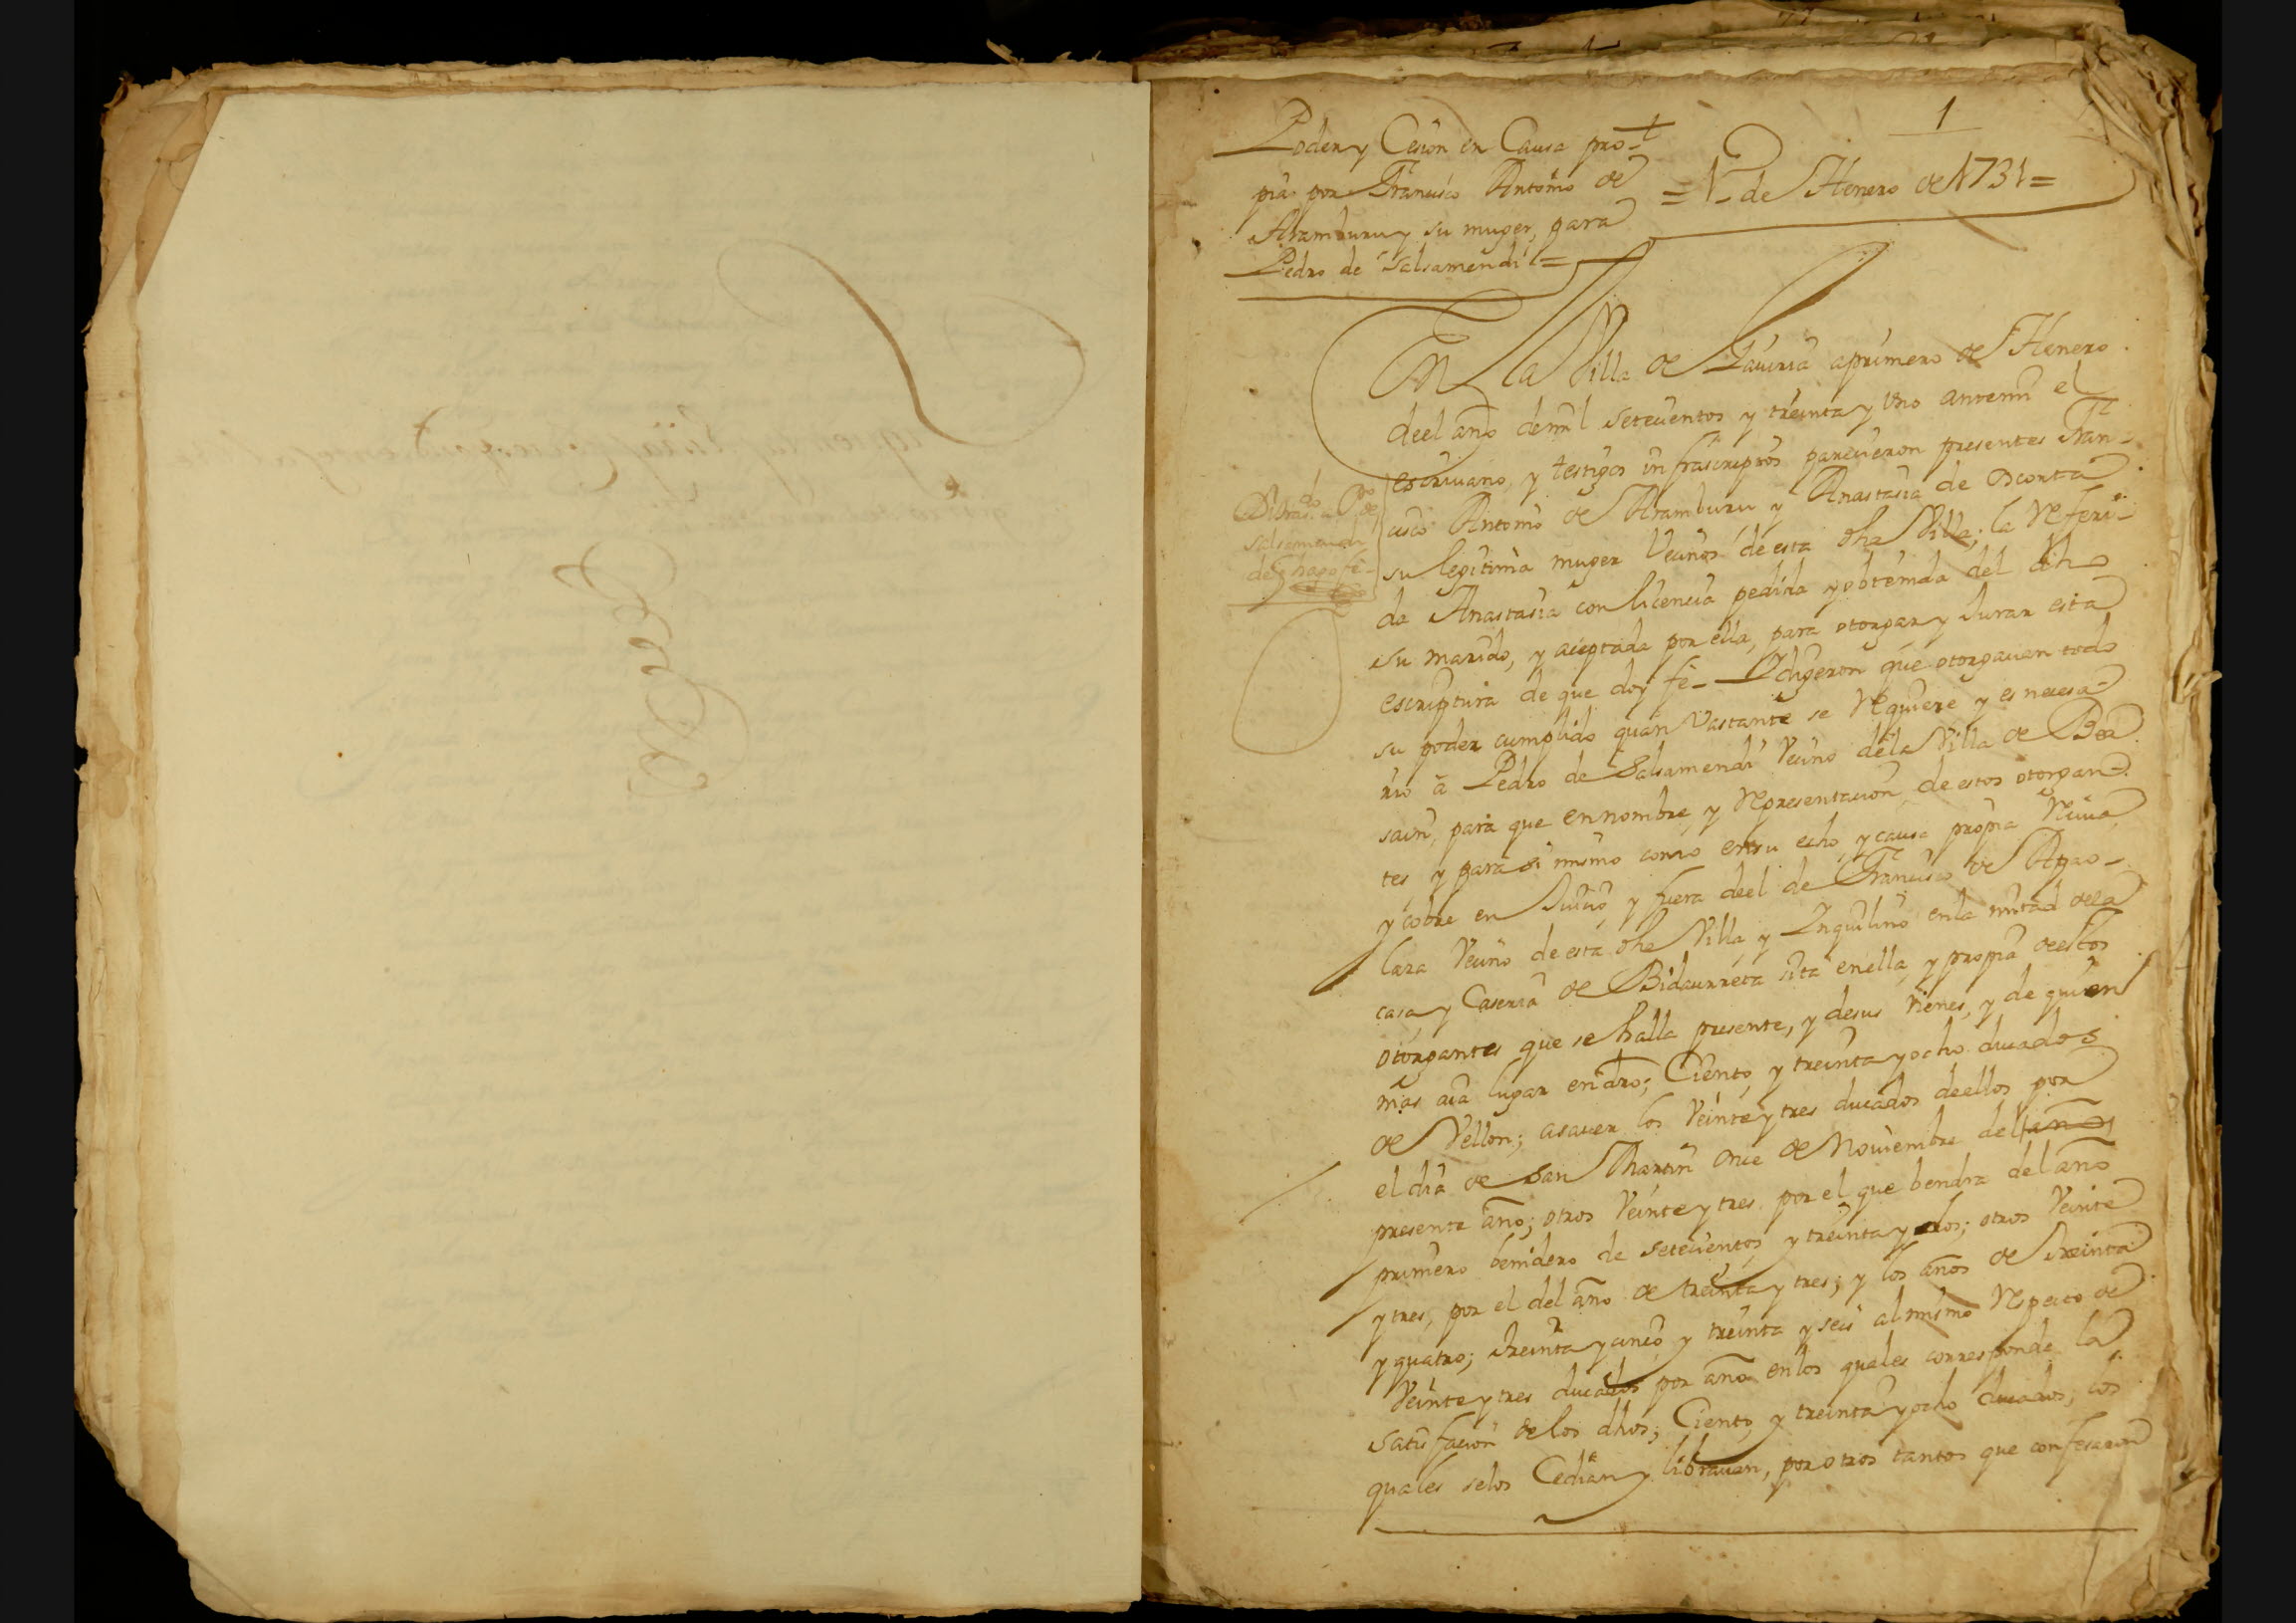 1
Poder y Cesion en Causa pro-
pia por Francisco Antonio de
Aramburu y su muger, para
Pedro de Salsamendi =
= 1º de Henero de 1731 =
En la Villa de Lauria a primero de Henero
deel año de mil setecientos y treinta y Uno antemi el
escriuano, y testigos infrascriptos parecieron presentes Fran-
cisco Antonio de Aramburu y Anastasia de
su legitima muger Vecinos de esta dha Villa; la Referi-
da Anastasia con licencia pedida y obtenida del dho
su marido, y aceptada por ella, para otorgar y Jurar esta
escriptura de que doy fe_ Y digeron que otorgauan todo
su poder cumplido quan Vastante se Requiere y es necesa-
rio a Pedro de Salsamendi Vecino dela Villa de Bea
sain, para que en nombre, y Representacion de estos otorgan-
tes y para si mismo como en su echo, y causa propia Reciua
y cobre en Juicio y fuera deel de Francisco de Apao-
laza Vecino de esta dha Villa, y Inquilino en la mitad dela
casa y Caseria de Bidaurreta sita enella, y propia de estos
otorgantes que se halla presente, y desus vienes, y de quien
mas aia lugar en dro; Ciento y treinta y ocho ducados
de Vellon; asauer los Veinte y tres ducados deellos por
el dia de San Martin Once de Nouiembre del año
presente año; otros Veinte y tres por el que bendra del año
primero benidero de setecientos y treinta y dos; otros Veinte
y tres, por el del año de treinta y tres; y los años de treinta
y quatro; treinta y cinco y treinta y seis al mismo Respecto de
Veinte y tres ducados por año en los quales corresponde la
satisfacion de los dhos; Ciento, y treinta y ocho ducados, los
quales selos Cedian y librauan, por otros tantos que confesaron